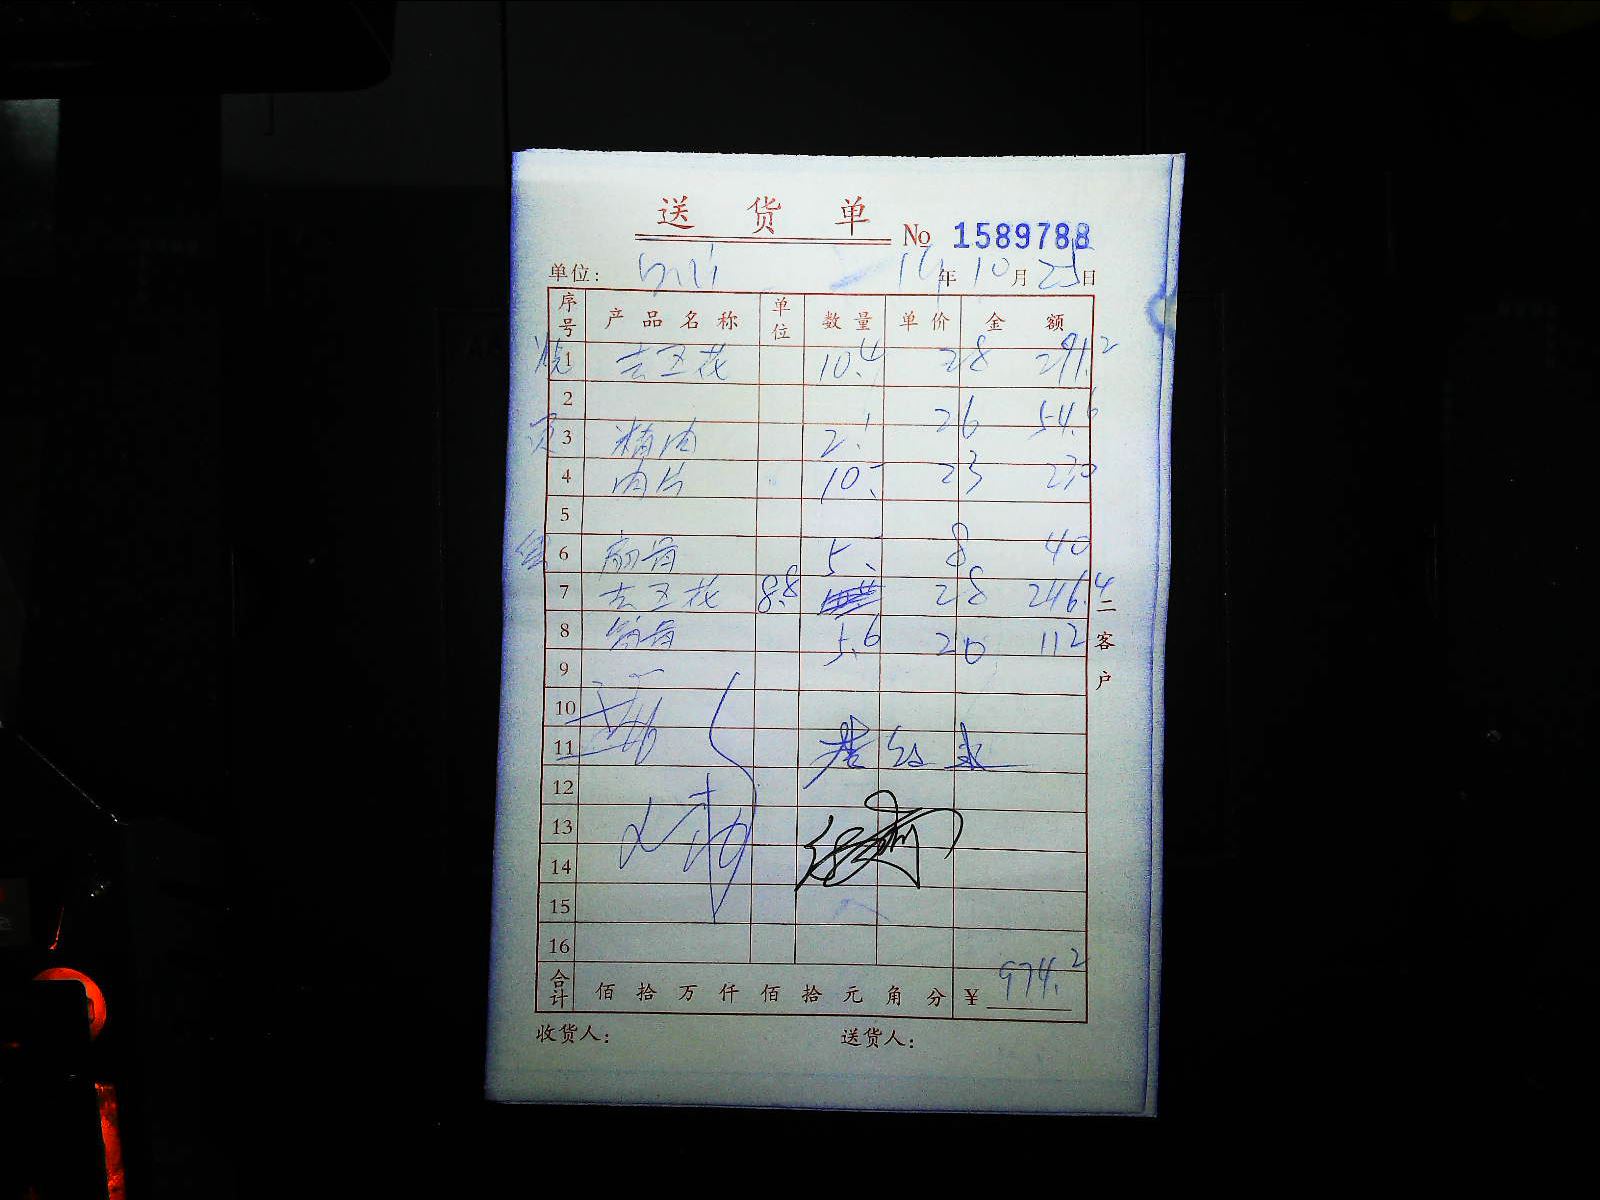 送 货 单
No 1589788
单位: 14年 10月 25日
序号 产品名称 单位 数量 单价 金额
烧 1 去五花 10.4 28 291.2
2
3 精肉 2.1 26 54.6
4 肉片 10. 23 230
5
6 扇骨 5. 8 40
7 去五花 8.8 28 246.4
8 筒骨 5.6 20 112
9
10
11
12
13
14
15
16
合计 佰 拾 万 仟 佰 拾 元 角 分 ¥ 974.2
二客户
收货人: 送货人: